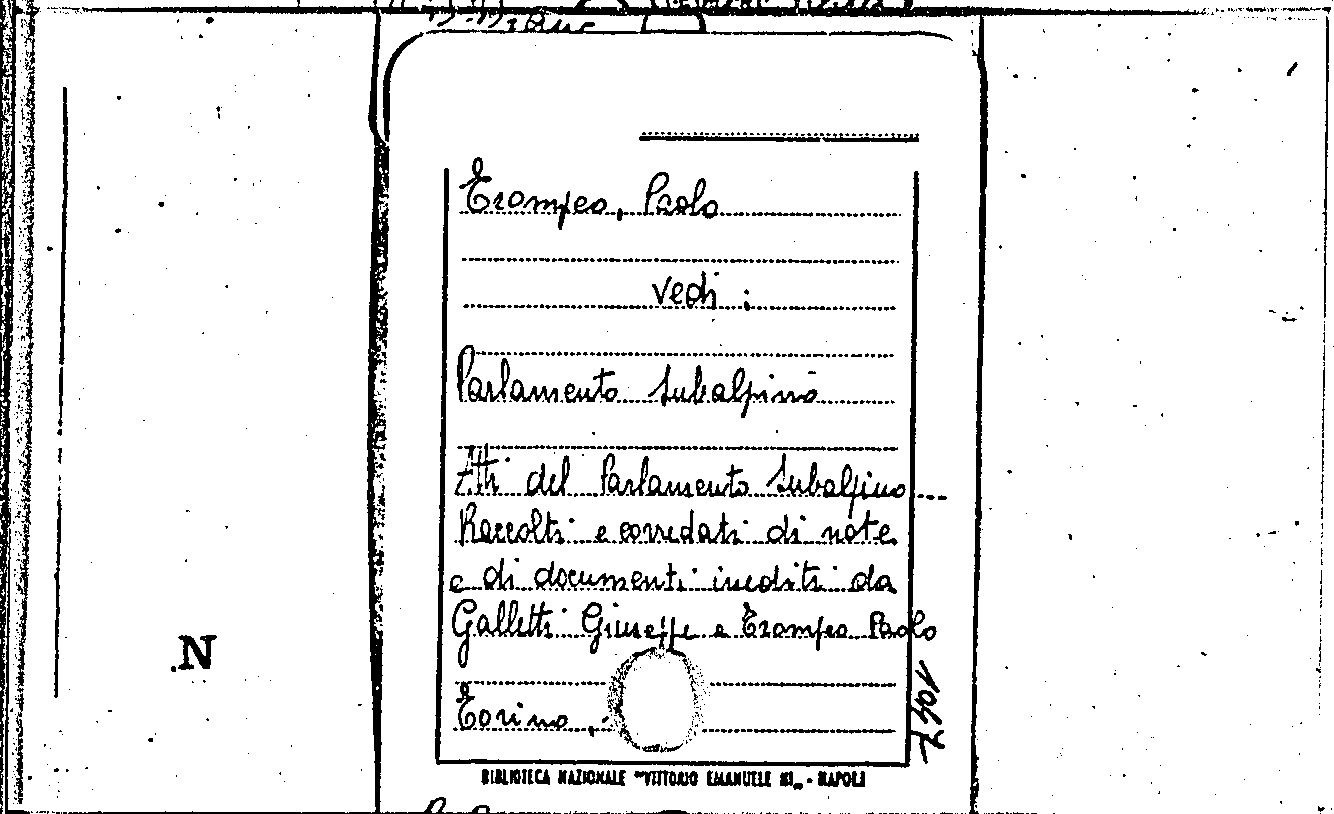 Trompeo, Paolo
vedi :
Parlamento Subalpino
Atti del Parlamento Subalpino...
Raccolti e corredati di note
e di documenti inediti da
Galletti Giuseppe e Trompeo Paolo
Torino, .
BIBLIOTECA NAZIONALE "VITTORIO EMANUELE III„ - NAPOLI
N